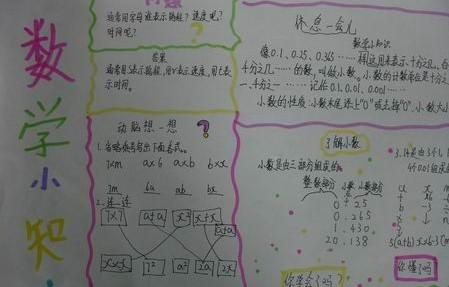 数学小知
通常用字母谁表示路程？速度呢？
时间呢？
答案
通常用S表示路程，用v表示速度，用t表
示时间。
动脑想一想 ?
1.省略乘号写出下面各式。
7×m a×6 a×b b×x
7m 6a ab bx
2.连一连
7×7 a+a x² x+x
a×a
x×x 7² a² 2a 2x
休息一会儿
数学小知识
像0.1、0.25、0.365……用这用来表示十分之几、百
十分之几……的数，叫做小数。小数的计数单位是十分之
一、十分之一……记作0.1、0.01、0.001……
小数的性质：小数末尾添上"0"或去掉"0"，小数大小
了解小数
小数是由三部分组成的。
整数部分 小数点 小数部分
0 . 25
0 . 265
1 . 430
20 . 138
你学会了吗？
你懂了吗